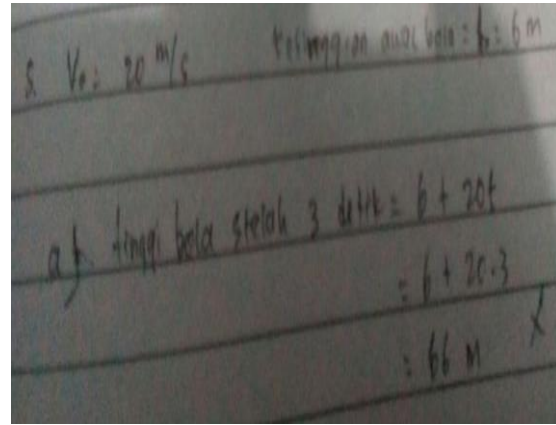 5. Vo = 20 m/s ketinggian awal bola = h = 6 m
a). tinggi bola stelah 3 detik = 6 + 20t
= 6 + 20.3
= 66 m